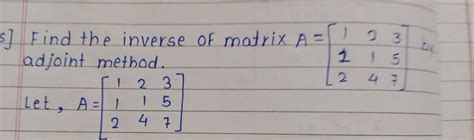 5] Find the inverse of matrix A = [ 1 2 3
1 1 5
2 4 7 ]
adjoint method.
Let, A = [ 1 2 3
1 1 5
2 4 7 ]